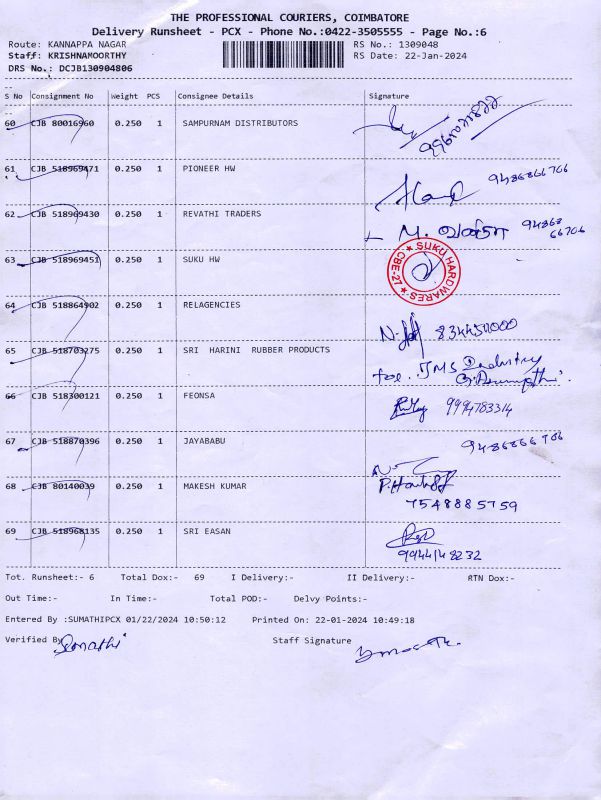 THE PROFESSIONAL COURIERS, COIMBATORE
Delivery Runsheet - PCX - Phone No.:0422-3505555 - Page No.:6
Route: KANNAPPA NAGAR RS No.: 1309048
Staff: KRISHNAMOORTHY RS Date: 22-Jan-2024
DRS No.: DCJB130904806
S No Consignment No Weight PCS Consignee Details Signature
60 CJB 80016960 0.250 1 SAMPURNAM DISTRIBUTORS
61 CJB 518969471 0.250 1 PIONEER HW 9486866706
62 CJB 518969430 0.250 1 REVATHI TRADERS M. 94868
66706
63 CJB 518969451 0.250 1 SUKU HW
SUKU HARDWARES ★ CBE-27 ★
64 CJB 518864902 0.250 1 RELAGENCIES
65 CJB 518703275 0.250 1 SRI HARINI RUBBER PRODUCTS
for. JMS Industry
66 CJB 518300121 0.250 1 FEONSA 9994783314
67 CJB 518870396 0.250 1 JAYABABU 9486866706
68 CJB 80140039 0.250 1 MAKESH KUMAR
7548885759
69 CJB 518968135 0.250 1 SRI EASAN
9944148232
Tot. Runsheet:- 6 Total Dox:- 69 I Delivery:- II Delivery:- RTN Dox:-
Out Time:- In Time:- Total POD:- Delvy Points:-
Entered By :SUMATHIPCX 01/22/2024 10:50:12 Printed On: 22-01-2024 10:49:18
Verified By Staff Signature